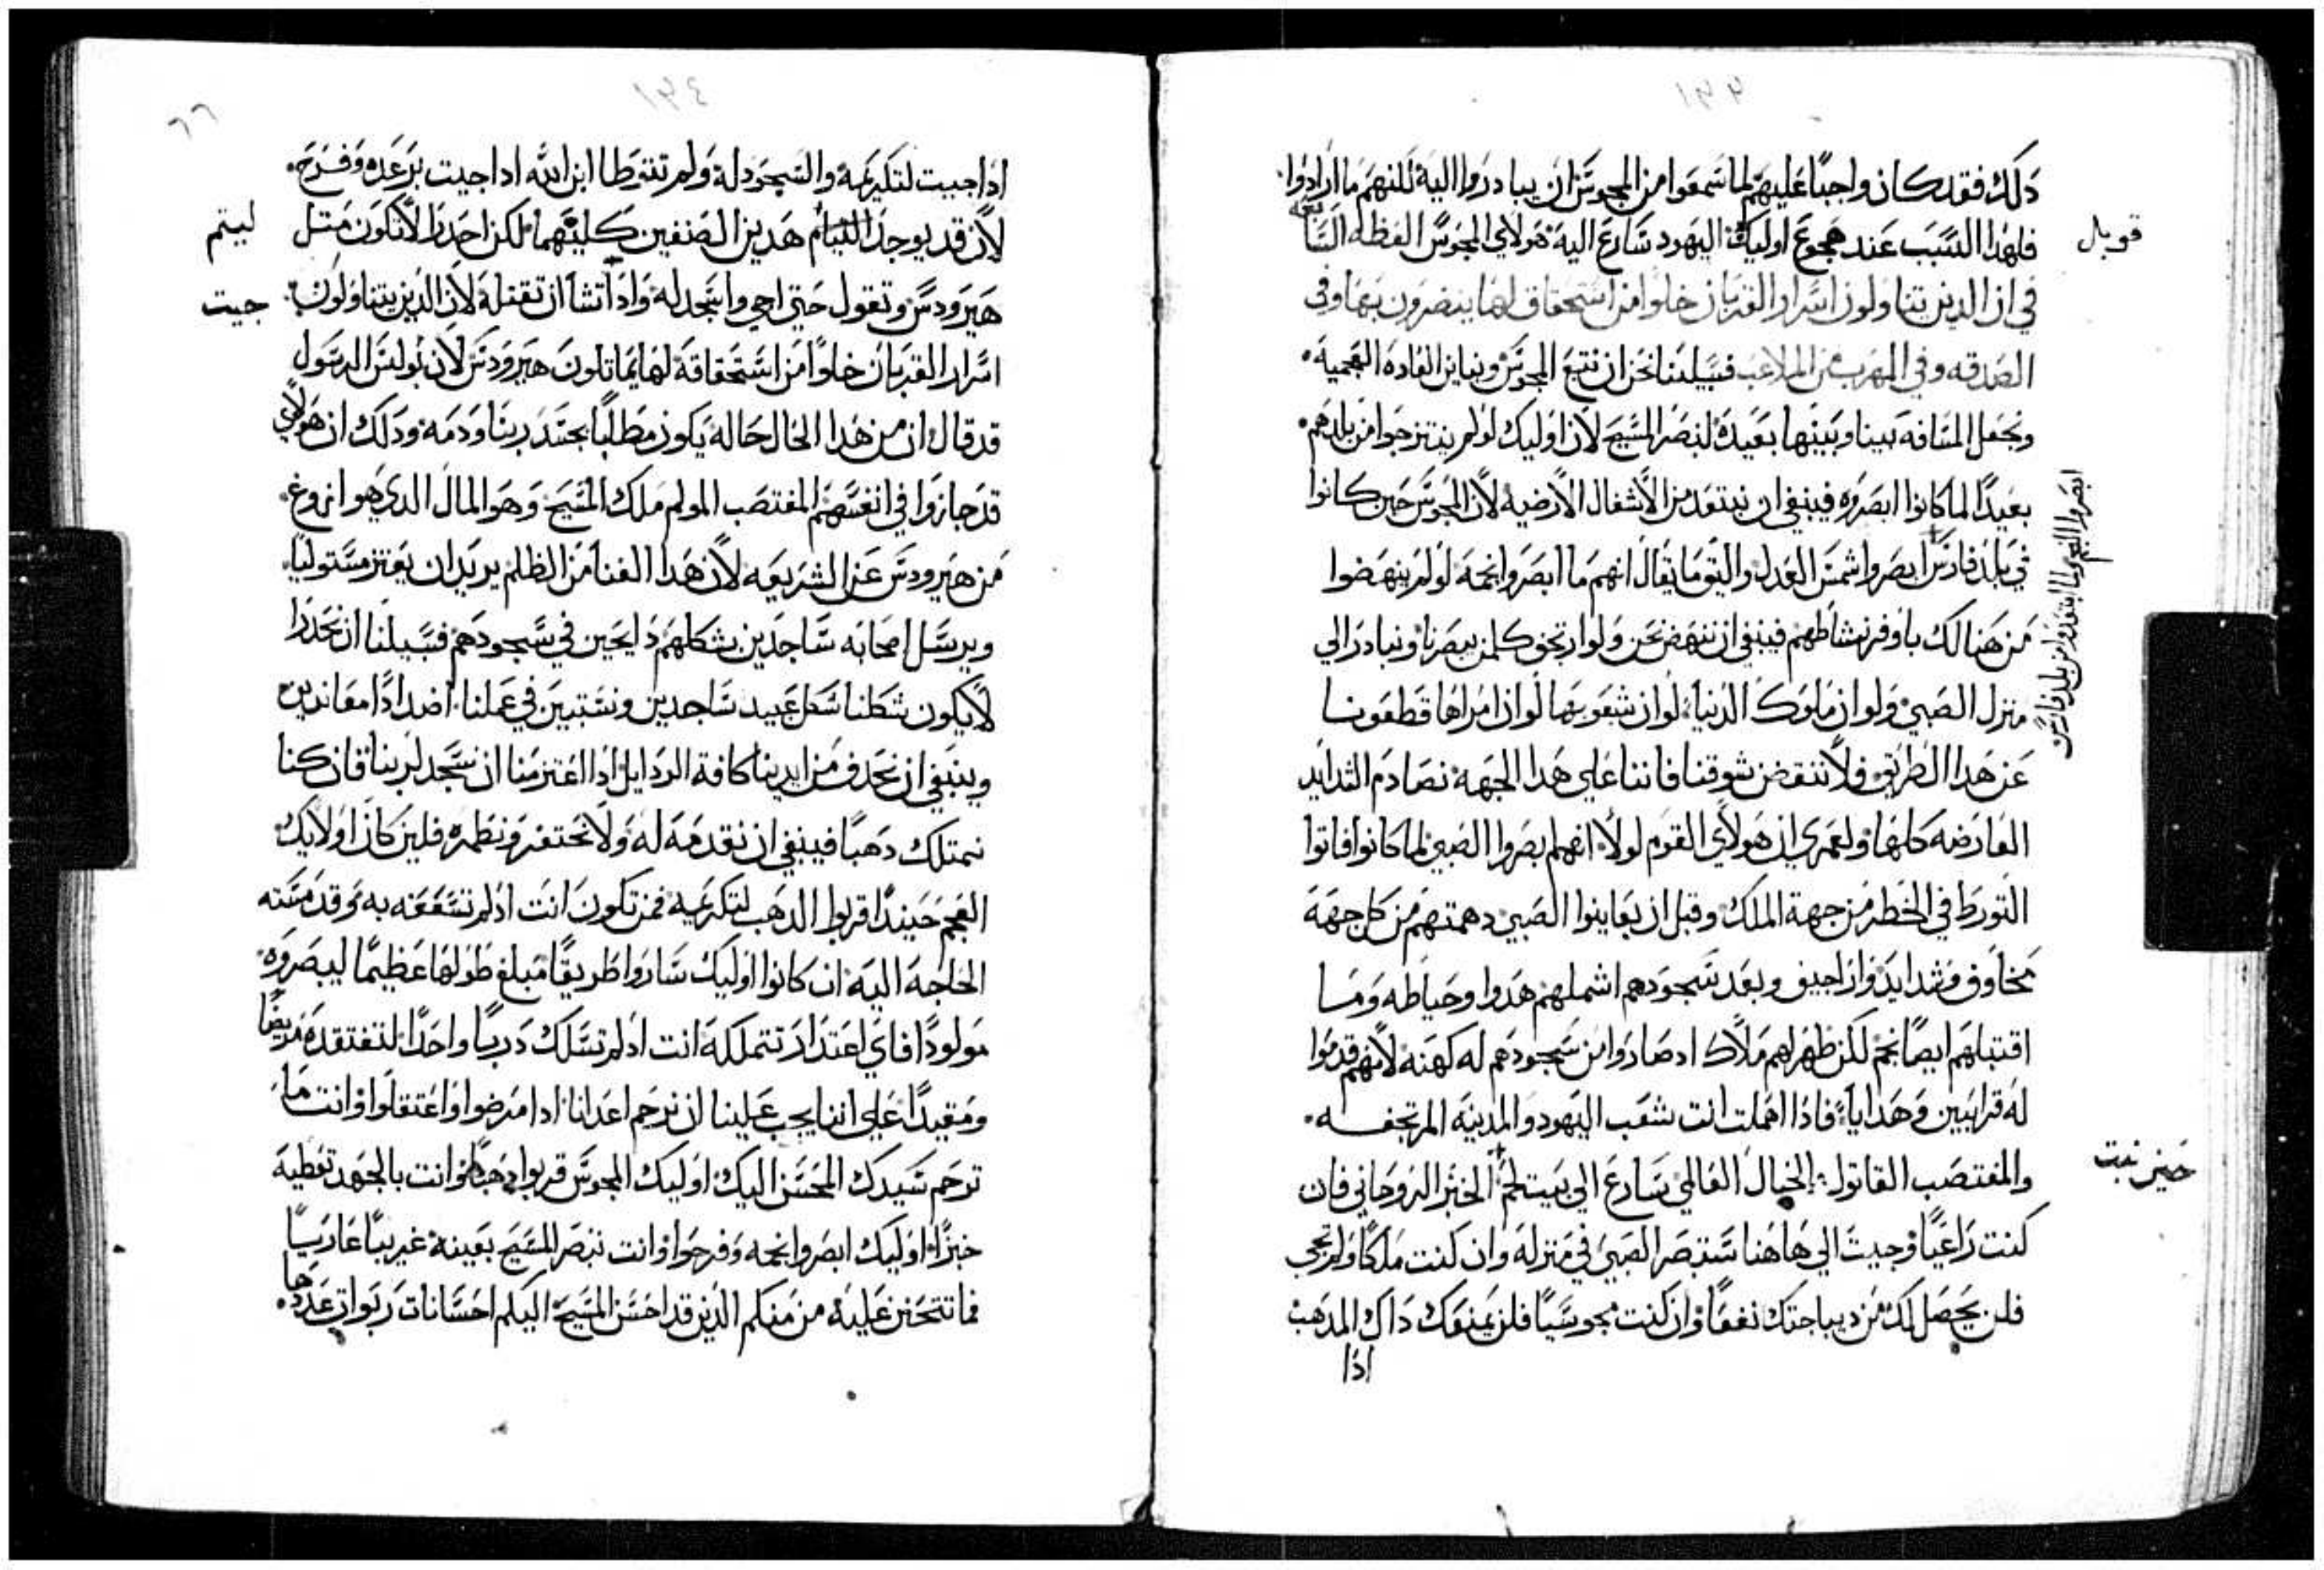 ١٣٣
دلك فقد كان واجبًا عليهم لما سمعوا من المجوس ان يبادروا اليه لكنهم ما ارادوا
فلهدا السبب عند هجوع اوليك اليهود سارع اليه هولاى المجوس العظه السابعه
في ان الدين يتناولون اسرار القربان خلوا من استحقاق لها ينضرون بها وفي
الصدقه وفي الهرب من الملاعب فسبيلنا نحن ان نتبع المجوس ونباين العاده العجميه
ونجعل المسافه بيننا وبينها بعيده لنبصر المسيح لان اوليك لو لم ينتزحوا من بلدهم
بعيدًا لما كانوا ابصروه فينبغي ان نبتعد من الاشغال الارضيه لان المجوس حين كانوا
في بلد فارس ابصروا شمس العدل والتوما يقال انهم ما ابصروا نجمه لو لم ينهضوا
من هنالك باوفر نشاطهم فينبغي ان ننهض نحن ولو ارتجف كلمن يبصرنا ونبادر الي
منزل الصبي ولو ان ملوك الدنيا لو ان شعوبها لو ان امراها قطعونا
عن هدا الطريق فلا ننقض شوقنا فاننا علي هدا الجهة نصادم الشدايد
العارضه كلها ولعمري ان هولاي القوم لولا انهم بصروا الصبي لما كانوا فاتوا
التورط في الخطر من جهة الملك وقبل ان يعاينوا الصبي دهمتهم من كل جهة
مخاوف وشدايد واراجيف وبعد سجودهم اشملهم هدوا وحياطه وما
اقتبلهم ايضًا نجم لكن ظهر لهم ملاك اد صاروا من سجودهم له كهنه لانهم قدموا
له قرابين وهدايا فاذا اهملت انت شعب اليهود والمدينه المرتجفه
والمغتصب القاتول الخيال العالمي سارع الي بيت لحم الخبز الروحاني فان
كنت راعيًا وجيت الي هاهنا ستبصر الصبي في منزله وان كنت ملكًا ولم تجي
فلن يحصل لك من ديباجتك نفعًا وان كنت مجوسيًا فلن يمنعك داك المدهب
اذا
قوبل
ابصروا النجم ولما ابتعدوا من بلد فارس
حين بنت
١٣٤
٦٦
اذا جيت لتكريمه والسجود له ولم تتوطا ابن الله ادا جيت برعده وفرح
لان قد يوجد التيام هدين الصنفين كليهما لكن احدر الا تكون متل
هيرودس وتقول حتي اجي واسجد له واذا تشا ان تقتله لان الدين يتناولون
اسرار القربان خلوًا من استحقاقة لها يماتلون هيرودس لان بولس الرسول
قد قال ان من هدا الحال حاله يكون مطلبًا بجسد ربنا ودمه ودلك ان هولاي
قد حازوا في انفسهم المغتصب المولم ملك المسيح وهو المال الدي هو اروغ
من هيرودس عن الشريعه لان هدا الغنا من الظلم يريد ان يعتز مستوليًا
ويرسل اصحابه ساجدين بشكلهم دابحين في سجودهم فسبيلنا ان نحدرا
لايكون شكلنا شكل عبيد ساجدين ونستبين في عملنا اضدادًا معاندين
وينبغي ان نحدف من ايدينا كافة الردايل اذا اعتزمنا ان نسجد لربنا فان كنا
نمتلك دهبًا فينبغي ان نقدمه له ولا نحتفر ونطمره فلين كان اولايك
العجم حينيدًا قربوا الدهب لتكرميه فمن تكون انت اذ لم تسعفه به وقد مسته
الحاجه اليه ان كانوا اوليك ساروا طريقًا مبلغ طولها عظيمًا ليبصروه
مولودًا فاي اعتدار تمتلكه انت اذ لم تسلك دربًا واحدًا لتفتقده مريضًا
ومقيدًا علي اننا يجب علينا ان نرحم اعدانا ادا مرضوا واعتقلوا وانت ما
ترحم سيدك المحسن اليك اوليك المجوس قربوا دهبًا وانت بالجهد تعطيه
خبزًا اوليك ابصروا نجمه وفرحوا وانت تبصر المسيح بعينه غريبًا عاريًا
فما تتحنن عليه من منكم الدين قد احسن المسيح اليكم احسانات ربوات عددها
ليتم
جيت